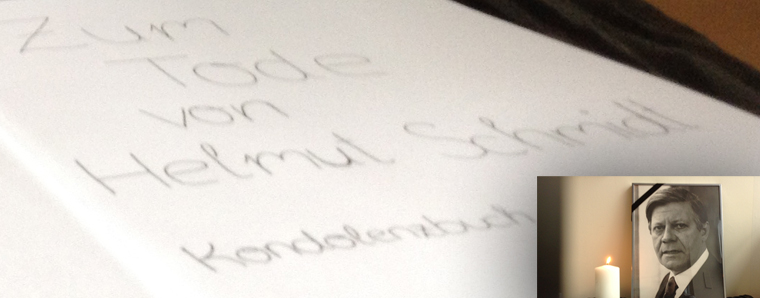 Zum
Tode
von
Helmut Schmidt
Kondolenzbuch